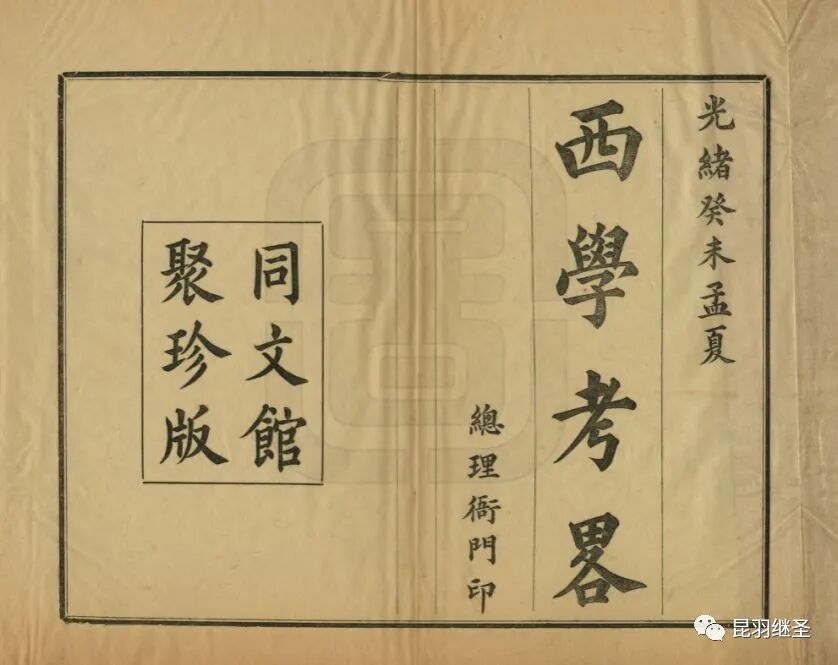 光緒癸未孟夏
西學考畧
總理衙門印
同文館
聚珍版
昆羽继圣